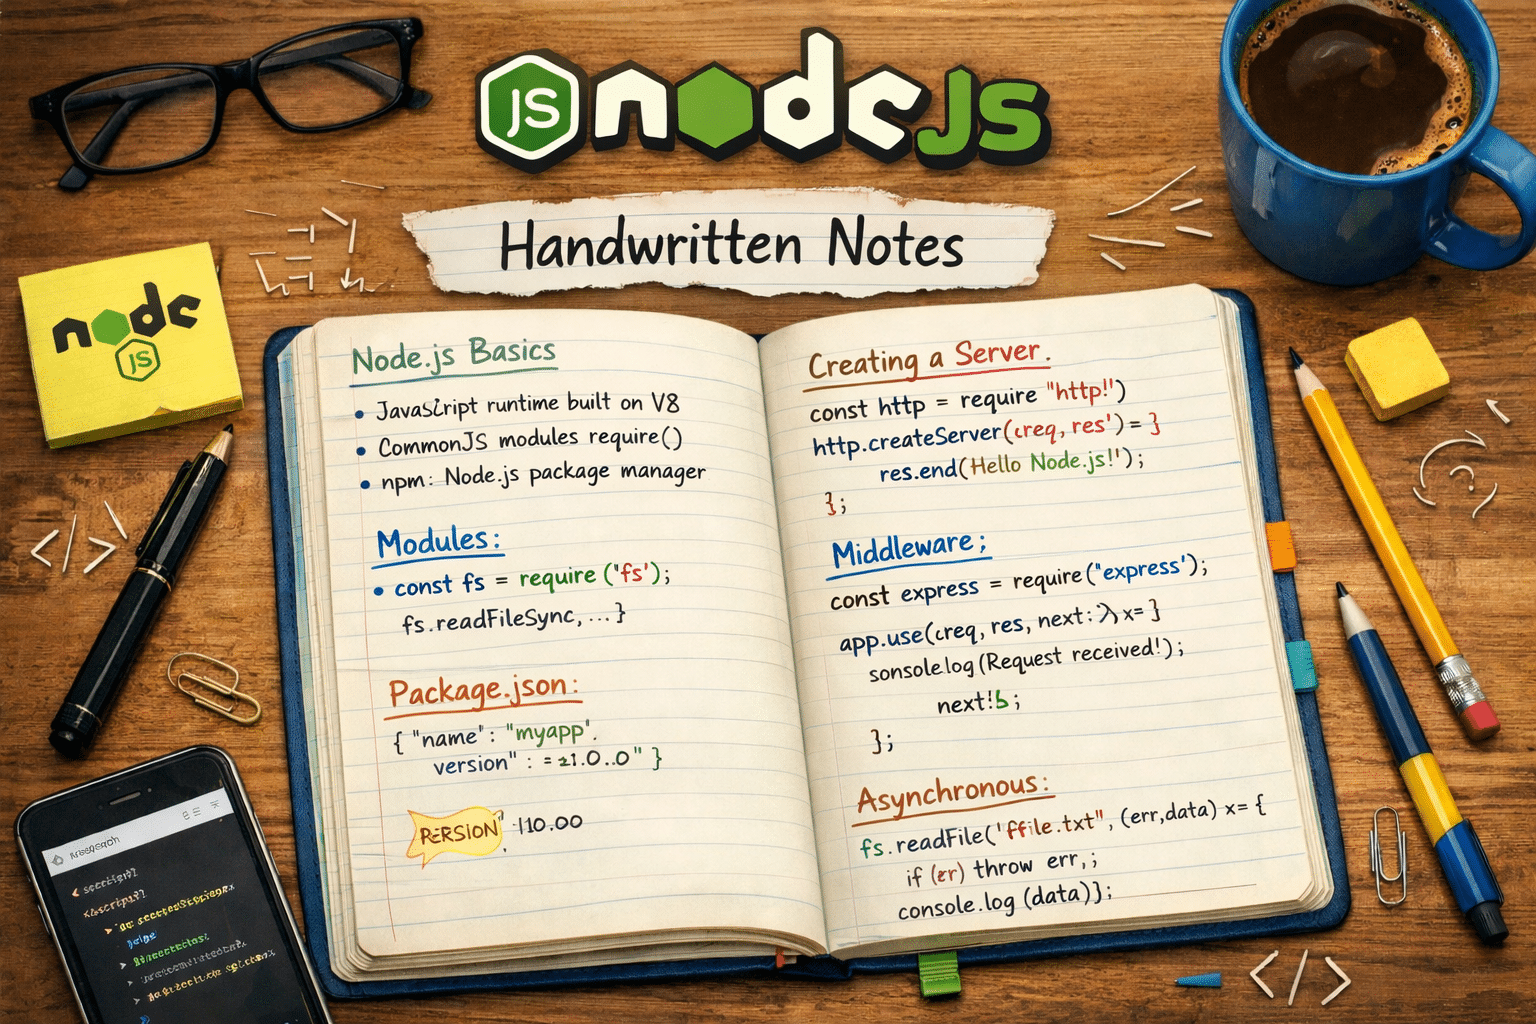 JS nodeJS
Handwritten Notes
node
JS
Node.js Basics
• JavaScript runtime built on V8
• CommonJS modules require()
• npm: Node.js package manager
Modules:
• const fs = require ('fs');
fs.readFileSync, ... }
Package.json:
{ "name" : "myapp".
version" : = ≥1.0..0" }
PERSION" 110.00
Creating a Server.
const http = require "http!')
http.createServer(creq, res') = }
res.end(Hello Node.js!');
};
Middleware;
const express = require("express');
app.use(creq, res, next: x= }
sonsole.log(Request received!);
next!b;
};
Asynchronous:
fs.readFile('ffile.txt", (err,data) x= {
if (er) throw err,;
console.log (data)};
</> 
</>